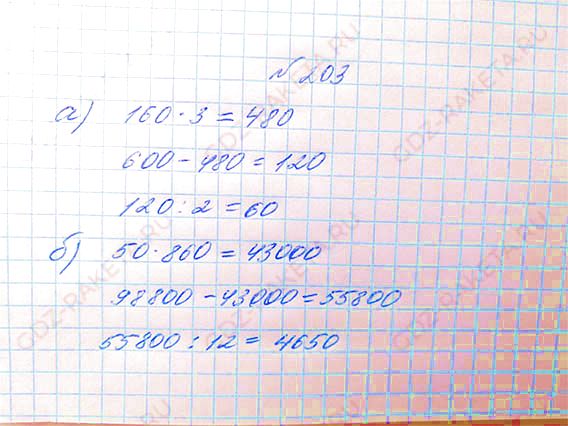 № 203
а) 160 · 3 = 480
600 - 480 = 120
120 : 2 = 60
б) 50 · 860 = 43000
98800 - 43000 = 55800
55800 : 12 = 4650
GDZ-RAKETA.RU
GDZ-RAKETA.RU
GDZ-RAKETA.RU
GDZ-RAKETA.RU
GDZ-RAKETA.RU
GDZ-RAKETA.RU